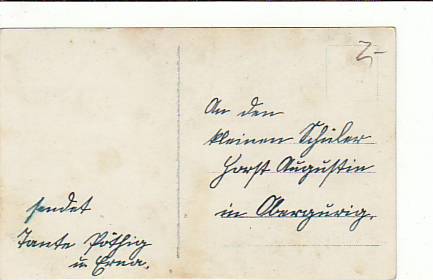 2,-
An den
kleinen Schüler
Horst Augustin
in Obergurig.
sendet
Tante Pöthig
u Erna.